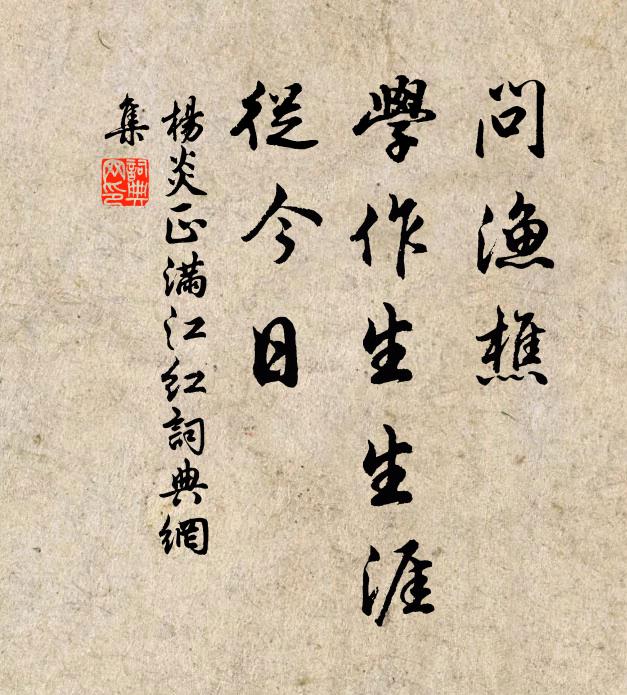 問漁樵
學作生生涯
從今日
楊炎正滿江紅詞典網
集
詞典網印